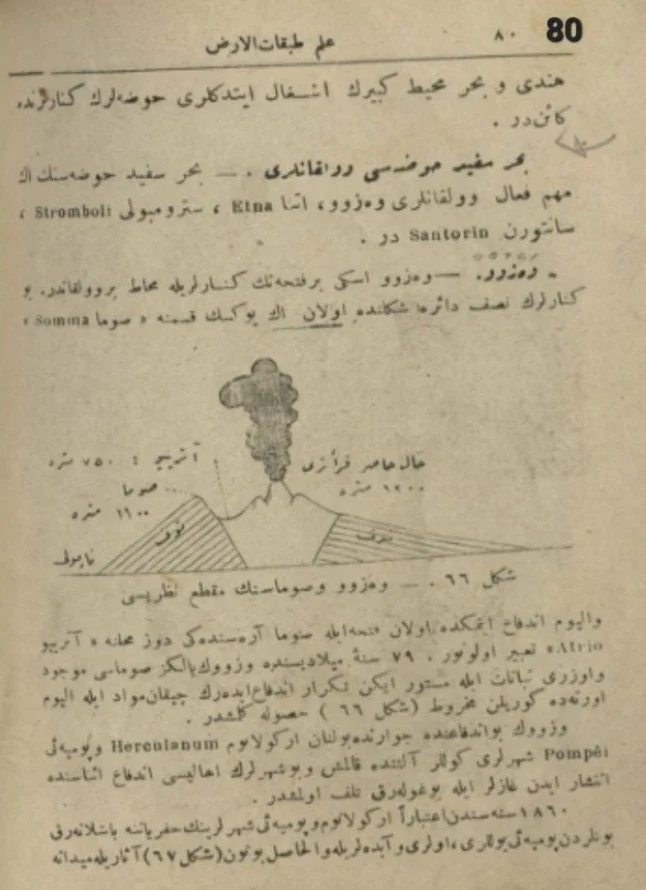 80
٨٠
علم طبقات‌الارض
هندی و بحر محیط کبیرك اشغال ایتدکلری حوضه‌لرك کنارلرنده
کائن‌در .
بحر سفید حوضه‌سی وولقانلری . — بحر سفید حوضه‌سنك اك
مهم فعال وولقانلری وه‌زوو، اتنا Etna ، سترومبولی Stromboli ،
سانتورن Santorin در .
وه‌زوو. — وه‌زوو اسکی برفتحه‌نك کنارلریله محاط بروولقاندر. بو
کنارلرك نصف دائره شکلنده اولان اك یوکسك قسمنه « صوما Somma »
حال حاضر
١٢٠٠ متره
آتریو : ٧٥٠ متره
صوما
١١٠٠ متره
توف
توف
ناپولی
شکل ٦٦ . — وه‌زوو وصوماسنك مقطع نظریسی
والیوم اندفاع ایتمکده اولان فتحه‌ایله صوما آره‌سنده‌کی دوز محله « آتریو
Atrio» تعبیر اولونور . ٧٩ سنهٔ میلادیسنده وزووك یالکز صوماسی موجود
واوزری نباتات ایله مستور ایکن تکرار اندفاع ایده‌رك چیقان مواد ایله الیوم
اورته‌ده کوریلن مخروط (شکل ٦٦) حصوله کلشدر .
وزووك بواندفاعنده جوارنده‌بولنان ارکولانوم Herculanum وپومپه‌ئی
Pompéi شهرلری کوللر آلتنده قالمش وبوشهرلرك اهالیسی اندفاع اثناسنده
انتشار ایدن غازلر ایله بوغوله‌رق تلف اولمشدر .
١٨٦٠ سنه‌سندن اعتباراً ارکولانوم وپومپه‌ئی شهرلرینك حفریاتنه باشلانه‌رق
بونلردن پومپه‌ئی یوللری ، اولری و آبده‌لریله والحاصل بوتون (شکل ٦٧) آثاریله میدانه